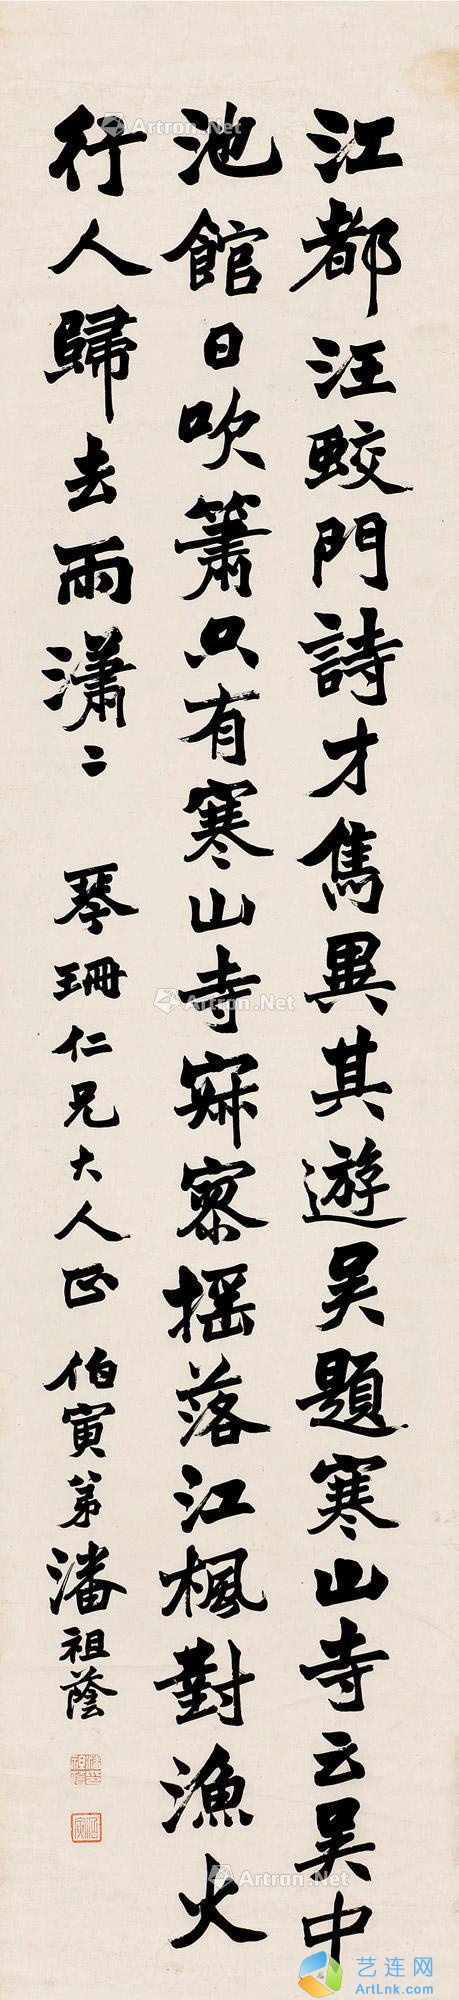 江都汪蛟門詩才雋異其遊吳題寒山寺云吳中
池館日吹簫只有寒山寺寂寥搖落江楓對漁火
行人歸去雨瀟二
琴珊仁兄大人正 伯寅弟潘祖蔭
Artron.Net
Artron.Net
Artron.Net
Artron.Net
艺连网
ArtLnk.com